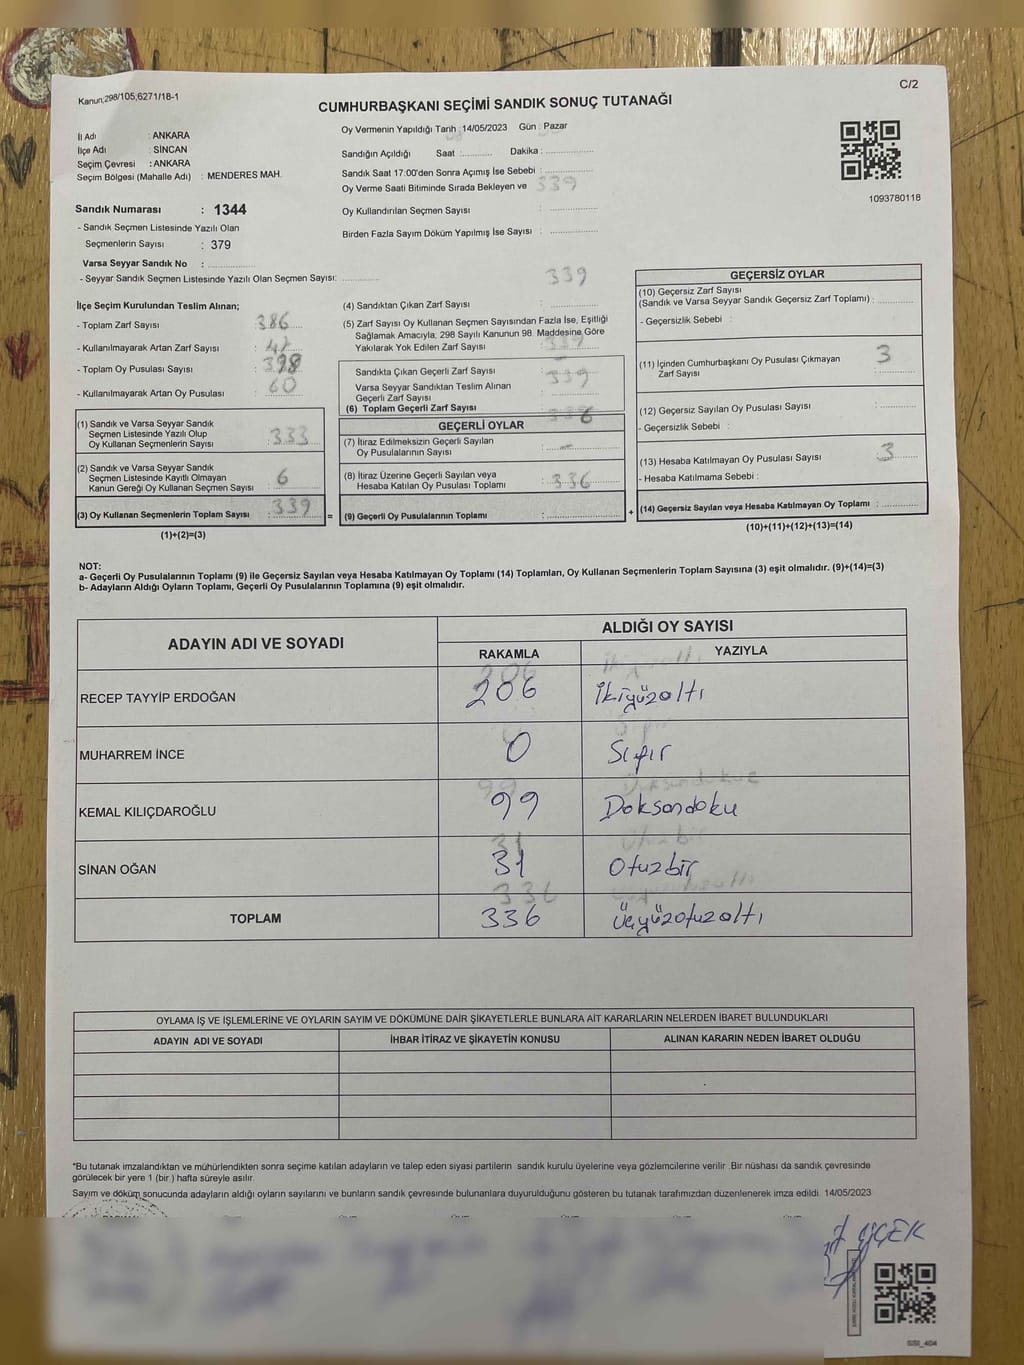 Kanun;298/105;6271/18-1
C/2
CUMHURBAŞKANI SEÇİMİ SANDIK SONUÇ TUTANAĞI
İl Adı : ANKARA
İlçe Adı : SİNCAN
Seçim Çevresi : ANKARA
Seçim Bölgesi (Mahalle Adı) : MENDERES MAH.
Oy Vermenin Yapıldığı Tarih : 14/05/2023 Gün : Pazar
Sandığın Açıldığı Saat :........... Dakika :...............
Sandık Saat 17:00'den Sonra Açımış İse Sebebi :
Oy Verme Saati Bitiminde Sırada Bekleyen ve 339
Oy Kullandırılan Seçmen Sayısı :
Birden Fazla Sayım Döküm Yapılmış İse Sayısı :
1093780118
Sandık Numarası : 1344
- Sandık Seçmen Listesinde Yazılı Olan
Seçmenlerin Sayısı : 379
Varsa Seyyar Sandık No :
- Seyyar Sandık Seçmen Listesinde Yazılı Olan Seçmen Sayısı:
İlçe Seçim Kurulundan Teslim Alınan;
- Toplam Zarf Sayısı : 386
- Kullanılmayarak Artan Zarf Sayısı : 47
- Toplam Oy Pusulası Sayısı : 398
- Kullanılmayarak Artan Oy Pusulası : 60
(1) Sandık ve Varsa Seyyar Sandık
Seçmen Listesinde Yazılı Olup
Oy Kullanan Seçmenlerin Sayısı : 333
(2) Sandık ve Varsa Seyyar Sandık
Seçmen Listesinde Kayıtlı Olmayan
Kanun Gereği Oy Kullanan Seçmen Sayısı : 6
(3) Oy Kullanan Seçmenlerin Toplam Sayısı : 339
(1)+(2)=(3)
339
(4) Sandıktan Çıkan Zarf Sayısı :
(5) Zarf Sayısı Oy Kullanan Seçmen Sayısından Fazla İse, Eşitliği
Sağlamak Amacıyla, 298 Sayılı Kanunun 98. Maddesine Göre
Yakılarak Yok Edilen Zarf Sayısı : 339
Sandıkta Çıkan Geçerli Zarf Sayısı : 339
Varsa Seyyar Sandıktan Teslim Alınan
Geçerli Zarf Sayısı :
(6) Toplam Geçerli Zarf Sayısı : 336
GEÇERLİ OYLAR
(7) İtiraz Edilmeksizin Geçerli Sayılan
Oy Pusulalarının Sayısı : -
(8) İtiraz Üzerine Geçerli Sayılan veya
Hesaba Katılan Oy Pusulası Toplamı : 336
= (9) Geçerli Oy Pusulalarının Toplamı :
GEÇERSİZ OYLAR
(10) Geçersiz Zarf Sayısı
(Sandık ve Varsa Seyyar Sandık Geçersiz Zarf Toplamı) :
- Geçersizlik Sebebi :
(11) İçinden Cumhurbaşkanı Oy Pusulası Çıkmayan
Zarf Sayısı : 3
(12) Geçersiz Sayılan Oy Pusulası Sayısı :
- Geçersizlik Sebebi :
(13) Hesaba Katılmayan Oy Pusulası Sayısı : 3
- Hesaba Katılmama Sebebi :
+ (14) Geçersiz Sayılan veya Hesaba Katılmayan Oy Toplamı :
(10)+(11)+(12)+(13)=(14)
NOT:
a- Geçerli Oy Pusulalarının Toplamı (9) ile Geçersiz Sayılan veya Hesaba Katılmayan Oy Toplamı (14) Toplamları, Oy Kullanan Seçmenlerin Toplam Sayısına (3) eşit olmalıdır. (9)+(14)=(3)
b- Adayların Aldığı Oyların Toplamı, Geçerli Oy Pusulalarının Toplamına (9) eşit olmalıdır.
ADAYIN ADI VE SOYADI
ALDIĞI OY SAYISI
RAKAMLA YAZIYLA
RECEP TAYYİP ERDOĞAN 206 İkiyüzaltı
MUHARREM İNCE 0 Sıfır
KEMAL KILIÇDAROĞLU 99 Doksandoku
SİNAN OĞAN 31 Otuzbir
TOPLAM 336 Üçyüzotuzaltı
OYLAMA İŞ VE İŞLEMLERİNE VE OYLARIN SAYIM VE DÖKÜMÜNE DAİR ŞİKAYETLERLE BUNLARA AİT KARARLARIN NELERDEN İBARET BULUNDUKLARI
ADAYIN ADI VE SOYADI İHBAR İTİRAZ VE ŞİKAYETİN KONUSU ALINAN KARARIN NEDEN İBARET OLDUĞU
*Bu tutanak imzalandıktan ve mühürlendikten sonra seçime katılan adayların ve talep eden siyasi partilerin sandık kurulu üyelerine veya gözlemcilerine verilir .Bir nüshası da sandık çevresinde
görülecek bir yere 1 (bir ) hafta süreyle asılır.
Sayım ve döküm sonucunda adayların aldığı oyların sayılarını ve bunların sandık çevresinde bulunanlara duyurulduğunu gösteren bu tutanak tarafımızdan düzenlenerek imza edildi. 14/05/2023
ÇİÇEK